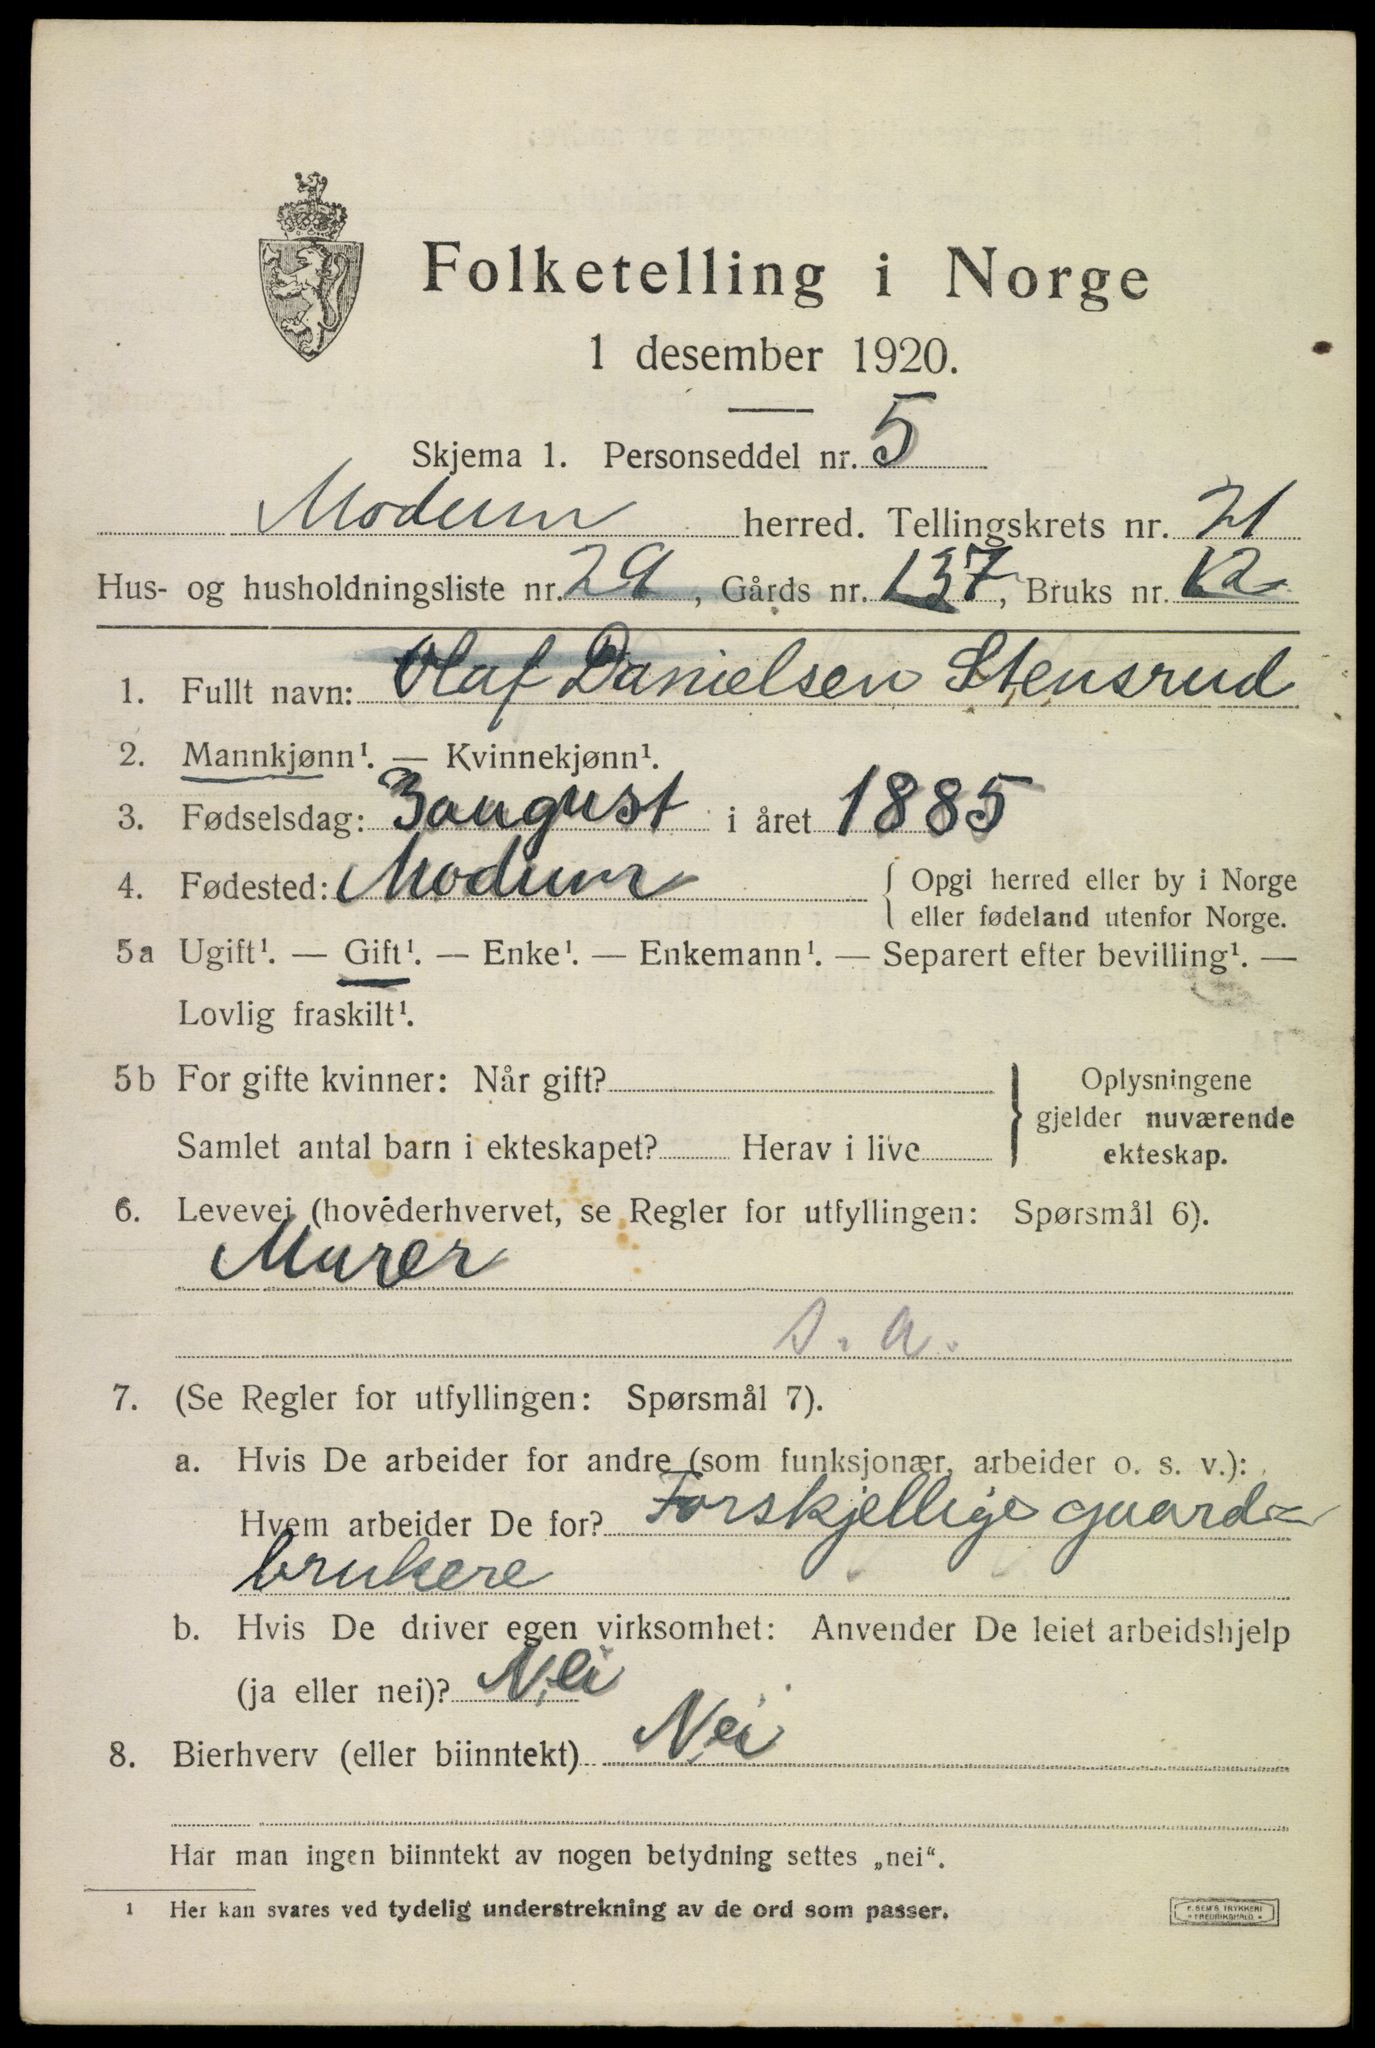 Folketelling i Norge
1 desember 1920.
Skjema 1. Personseddel nr. 5
Modum herred. Tellingskrets nr. 21
Hus- og husholdningsliste nr. 29, Gårds nr. 137, Bruks nr. 12
1. Fullt navn: Olaf Danielsen Stensrud
2. Mannkjønn¹. — Kvinnekjønn¹.
3. Fødselsdag: 3 august i året 1885
4. Fødested: Modum { Opgi herred eller by i Norge
eller fødeland utenfor Norge.
5a Ugift¹. — Gift¹. — Enke¹. — Enkemann¹. — Separert efter bevilling¹. —
Lovlig fraskilt¹.
5b For gifte kvinner: Når gift? Oplysningene
gjelder nuværende
Samlet antal barn i ekteskapet? Herav i live ekteskap.
6. Levevei (hovederhvervet, se Regler for utfyllingen: Spørsmål 6).
Murer
s. a.
7. (Se Regler for utfyllingen: Spørsmål 7).
a. Hvis De arbeider for andre (som funksjonær, arbeider o. s. v.):
Hvem arbeider De for? Forskjellige gaard=
brukere
b. Hvis De driver egen virksomhet: Anvender De leiet arbeidshjelp
(ja eller nei)? Nei
8. Bierhverv (eller biinntekt) Nei
Har man ingen biinntekt av nogen betydning settes „nei“.
1 Her kan svares ved tydelig understrekning av de ord som passer.
E. SEM'S TRYKKERI
* FREDRIKSHALD *